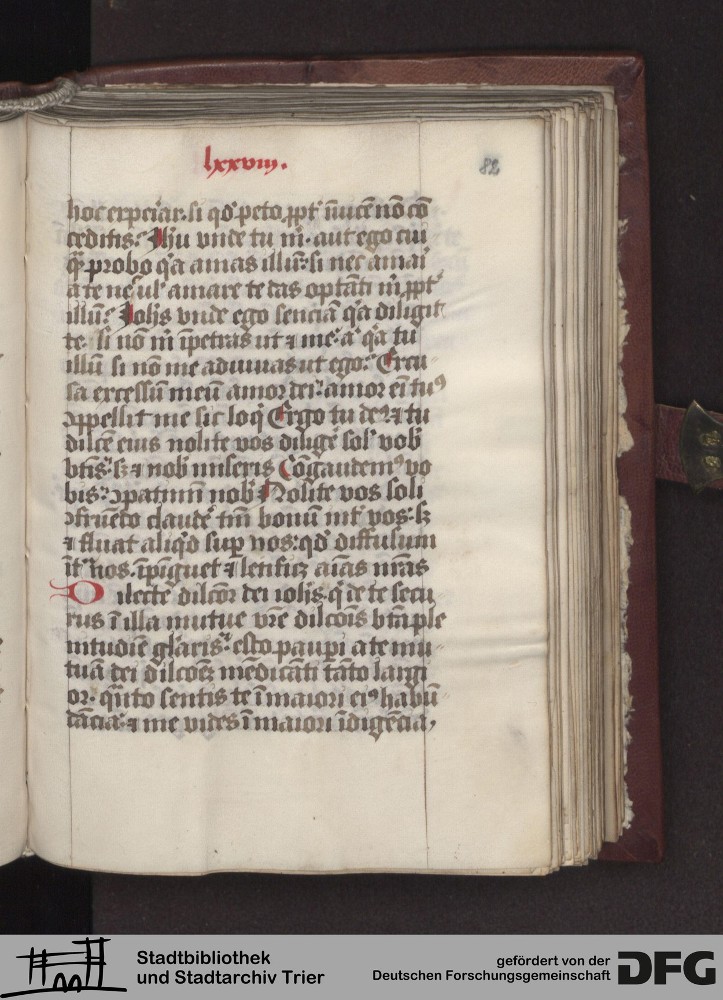 lxxviii.
82
hoc experiar. si qd̄ peto ꝓpt̄ īuicē nō cō
ceditis. Ihū vnde tu m̄. aut ego cui
ꝓbo qa amas illū. si nec amar
a te nec ul amare te das optāti m̄ ꝓpt
illū. Iohs vnde ego senciā qa diligit
te. si nō m̄ īpetras ut ⁊ me. a qa tu
illū si nō me adiuuas ut ego. Excu
sa excessū meū amor dei. amor eī tuꝰ
ↄppellit me sic loqͥ Ergo tu de ⁊ tu
dilcē eius nolite vos diligē sol vob
vtis. sꝫ ⁊ nob miseris Cōgaudemꝰ vo
bis. ↄpatimī nob Nolite vos soli
tm̄ bonū int̄ vos. sꝫ
⁊ fluat aliqd sup nos. qd̄ diffusum
īt nos. īpīguet ⁊ letificꝫ aīas nr̄as
Dilecte dilcōr dei iohs. qͥ de te secu
rus ī illa mutue vr̄e dilcōis bt̄a ple
nitudīe glāris. esto paupi a te mu
tuā dei dilcōeꝫ mēdicāti tāto largi
or. qn̄to sentis te ī maiori eiꝰ habū
dācia. ⁊ me vides ī maiori īdigēcia,
Stadtbibliothek
und Stadtarchiv Trier
gefördert von der
Deutschen Forschungsgemeinschaft
DFG